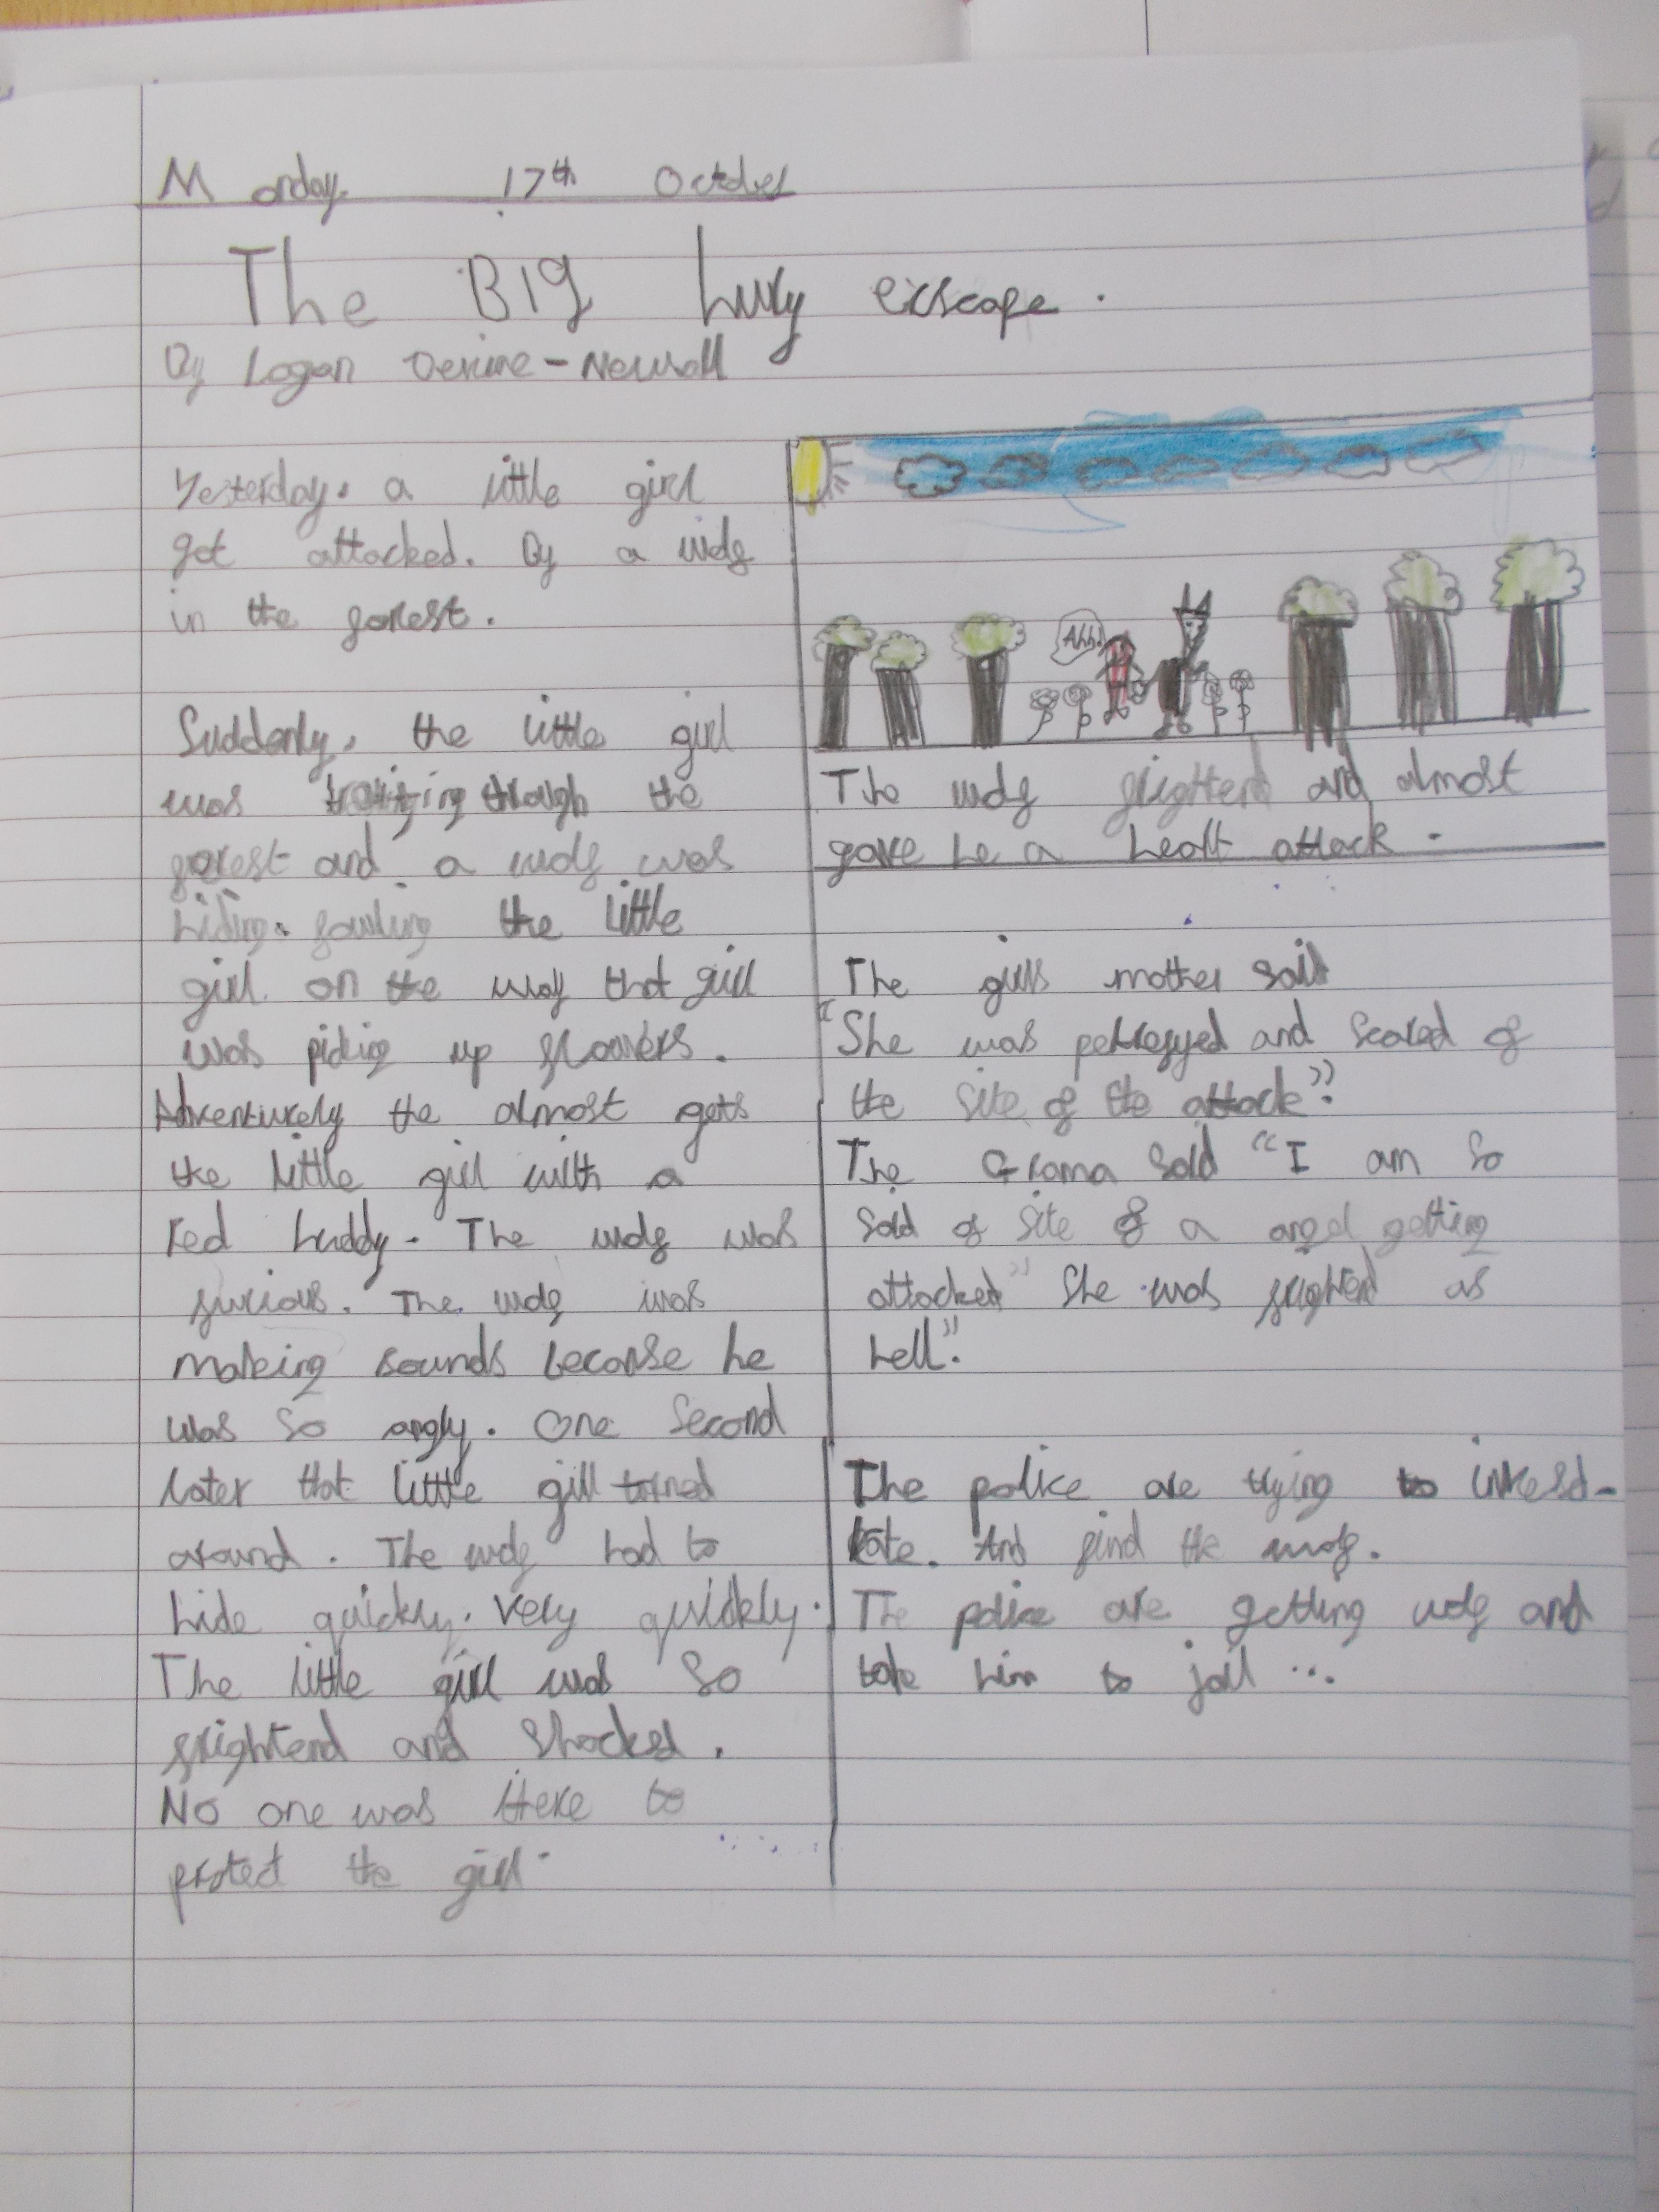 Monday 17th October
The BIG hury exscape.
By Logan Devine-Newall
Yesterday, a little girl
got attacked. By a wolf
in the forest.
Suddenly, the little girl
was through the
forest and a wolf was
hiding. fowling the little
girl. on the way that girl
was picking up flowers.
Adventurely the almost gets
the little girl with a
red huddy. The wolf was
furious. The wolf was
making sounds becorse he
was so angry. One second
later that little girl torned
around. The wolf had to
hide quickly. Very quickly.
The little girl was so
frightend and shocked.
No one was there to
protect the girl.
Ahh!
The wolf frightend and almost
gave he a heart attack.
The girls mother said
"She was petrefyed and scared of
the site of the attack".
The Grama said "I am so
sad of site of a angel getting
attacked" She was frightend as
hell".
The police are trying to invesd-
tate. And find the wolf.
The police are getting wolf and
take him to jail ...